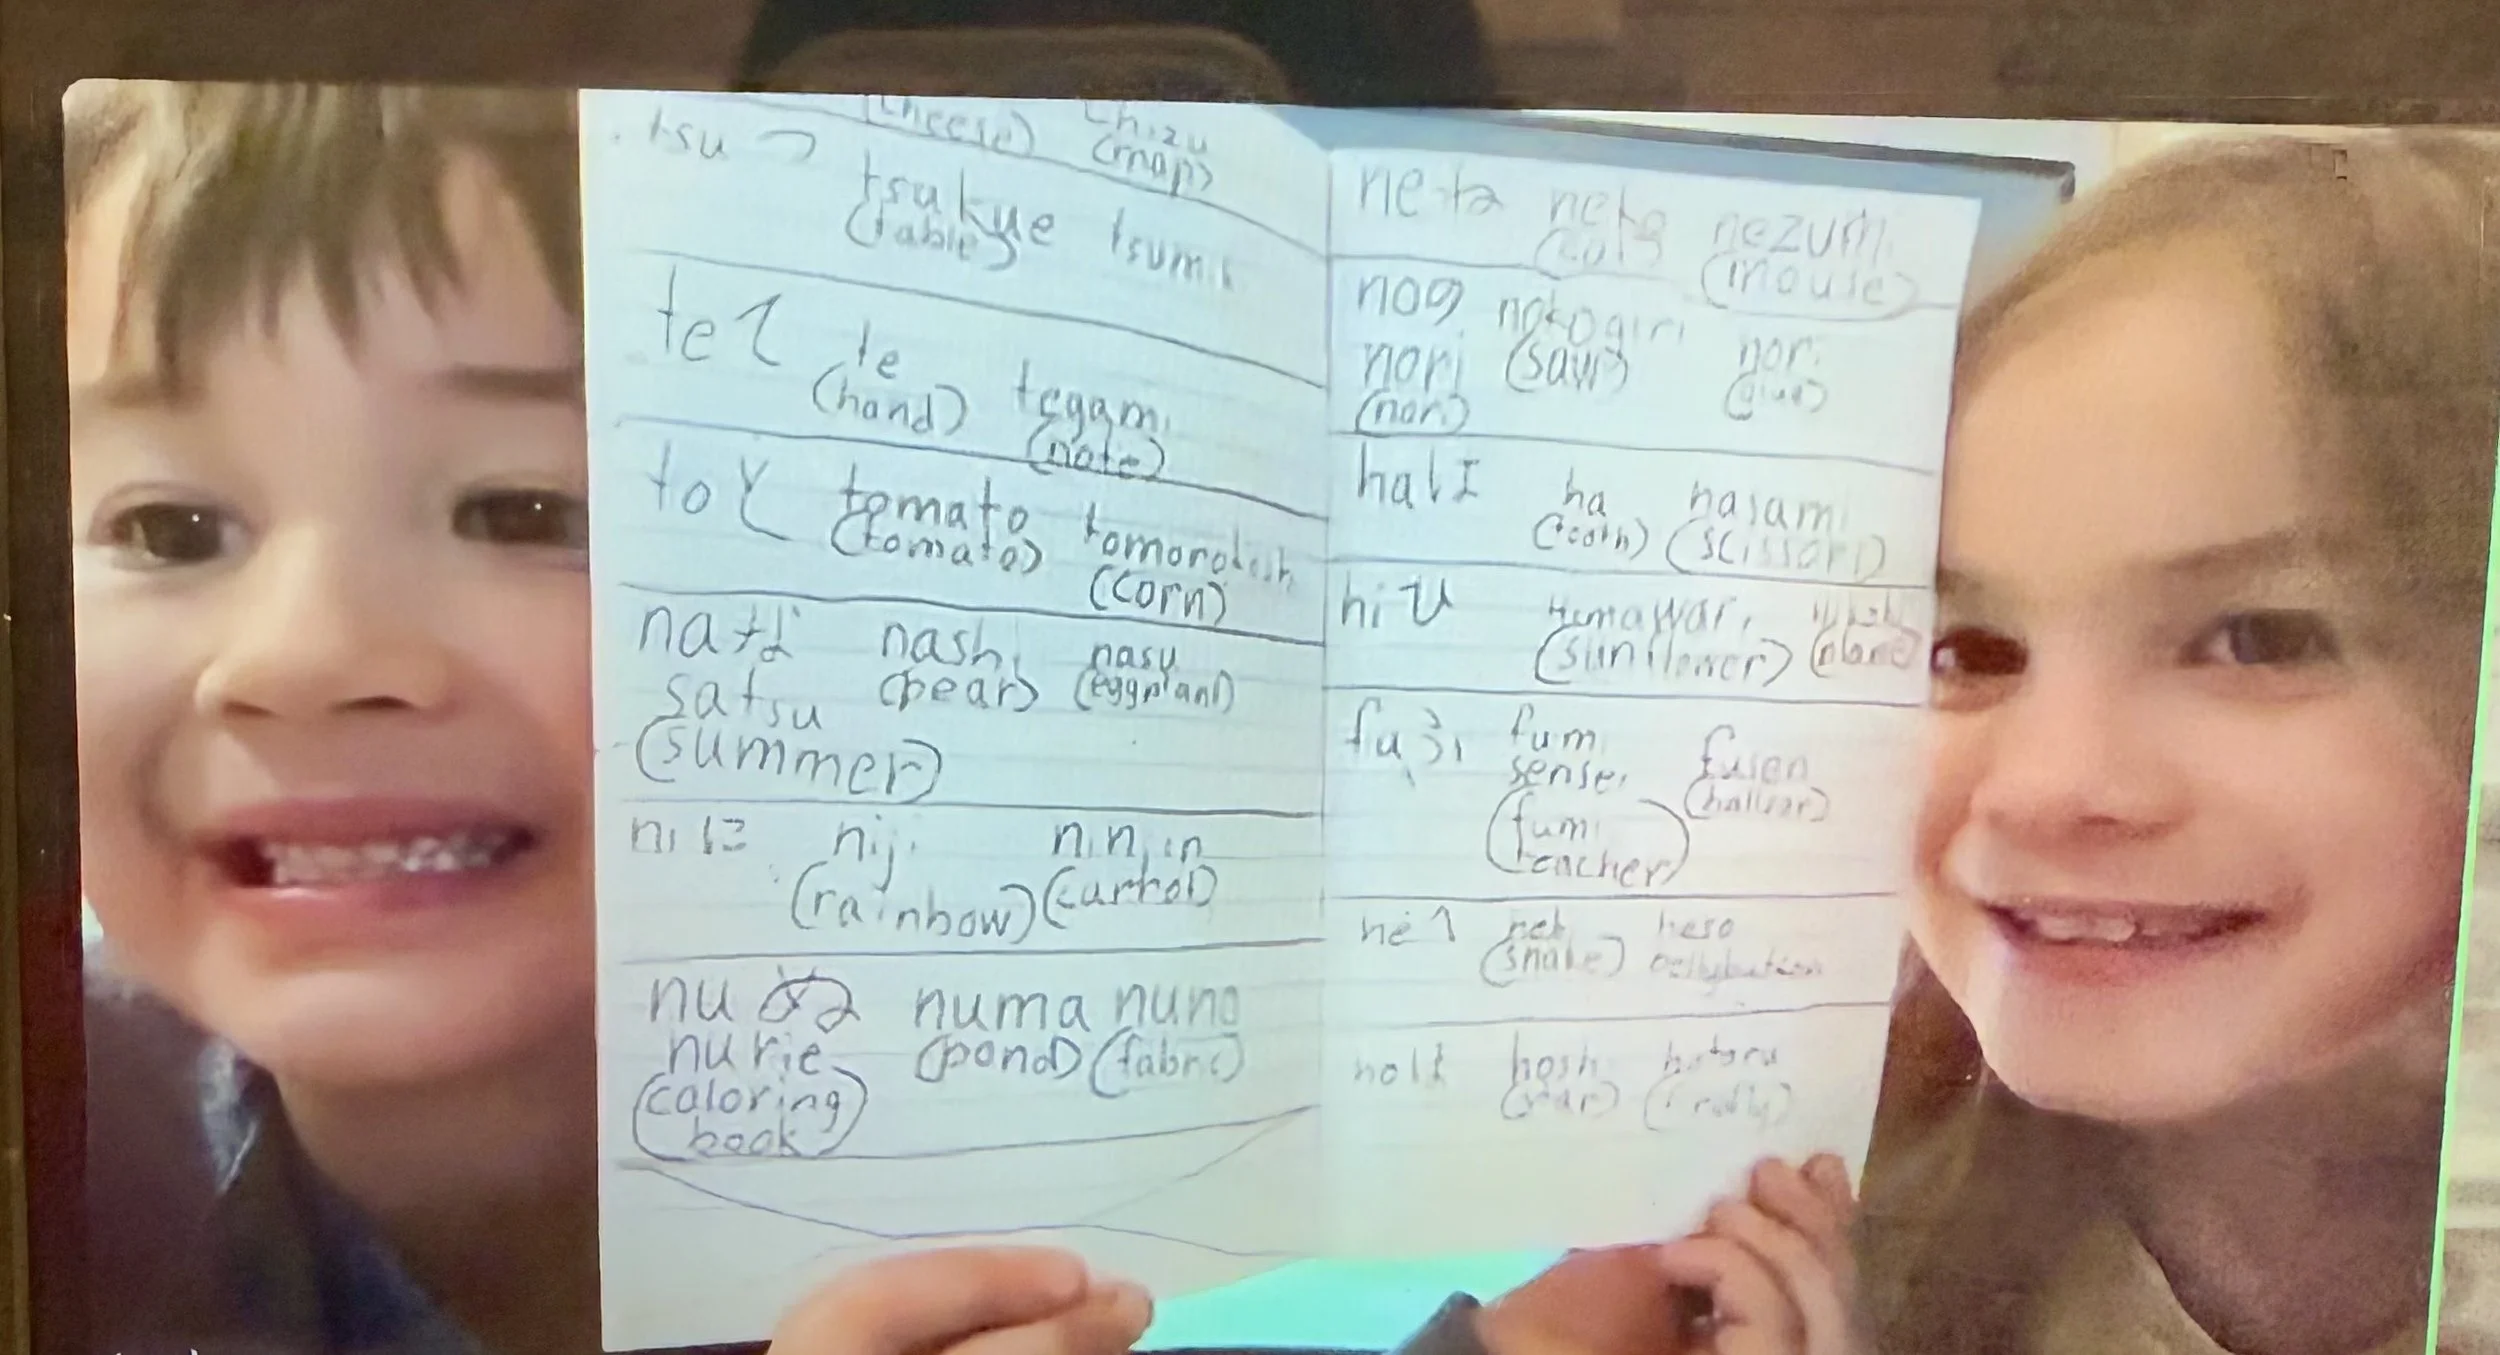 (cheese) chizu
(map)
tsu つ tsukue tsumik
(table)
te て te tegami
(hand) (note)
to と tomato
(tomato) (corn)
na な nashi nasu
satsu (pear) (eggplant)
(summer)
ni に niji ninjin
(rainbow) (carrot)
nu ぬ numa nuno
nurie (pond) (fabric)
(coloring
book)
ne ね neko nezumi
(mouse)
no の nokogiri nori
nori (saw) (glue)
(nori)
ha は ha hasami
(tooth) (scissors)
hi ひ Himawari
(sunflower) (plane)
fu ふ fumi fusen
sensei
(fumi
teacher)
he へ hebi heso
(snake) bellybutton
ho ほ hoshi hotaru